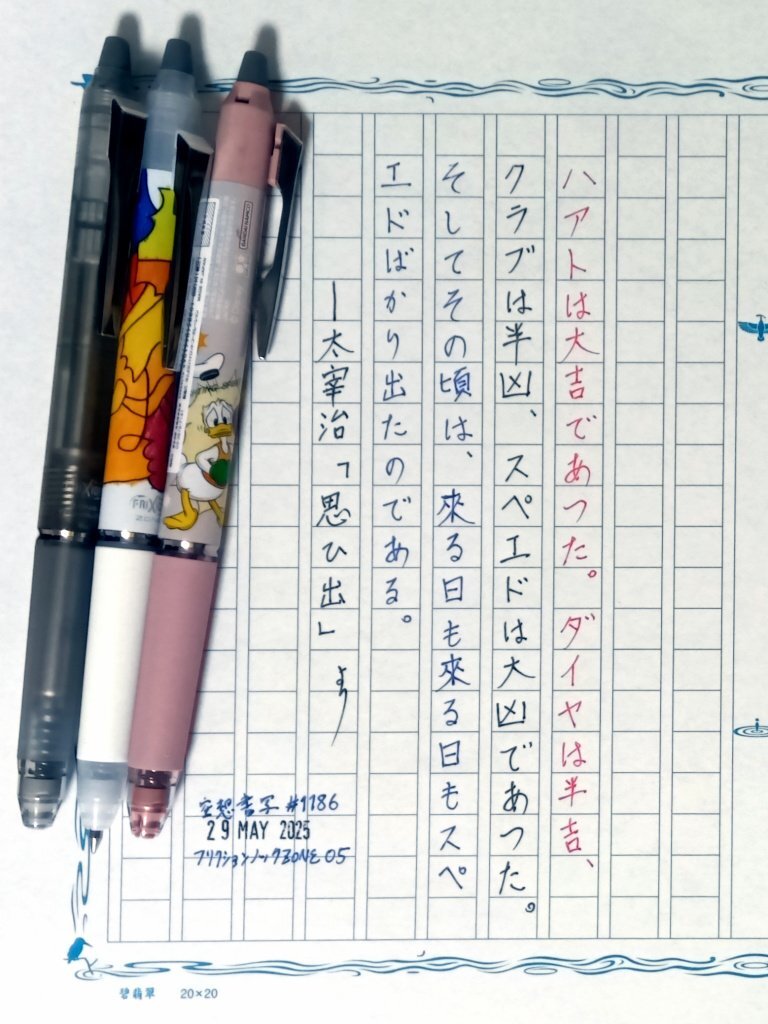 ハアトは大吉であつた。ダイヤは半吉、
クラブは半凶、スペエドは大凶であつた。
そしてその頃は、來る日も來る日もスペ
エドばかり出たのである。
―太宰治「思ひ出」より
空想書写 #1186
29 MAY 2025
フリクションノックZONE 05
碧翡翠 20×20
BANDAI NAMCO
Disney
FRIXION